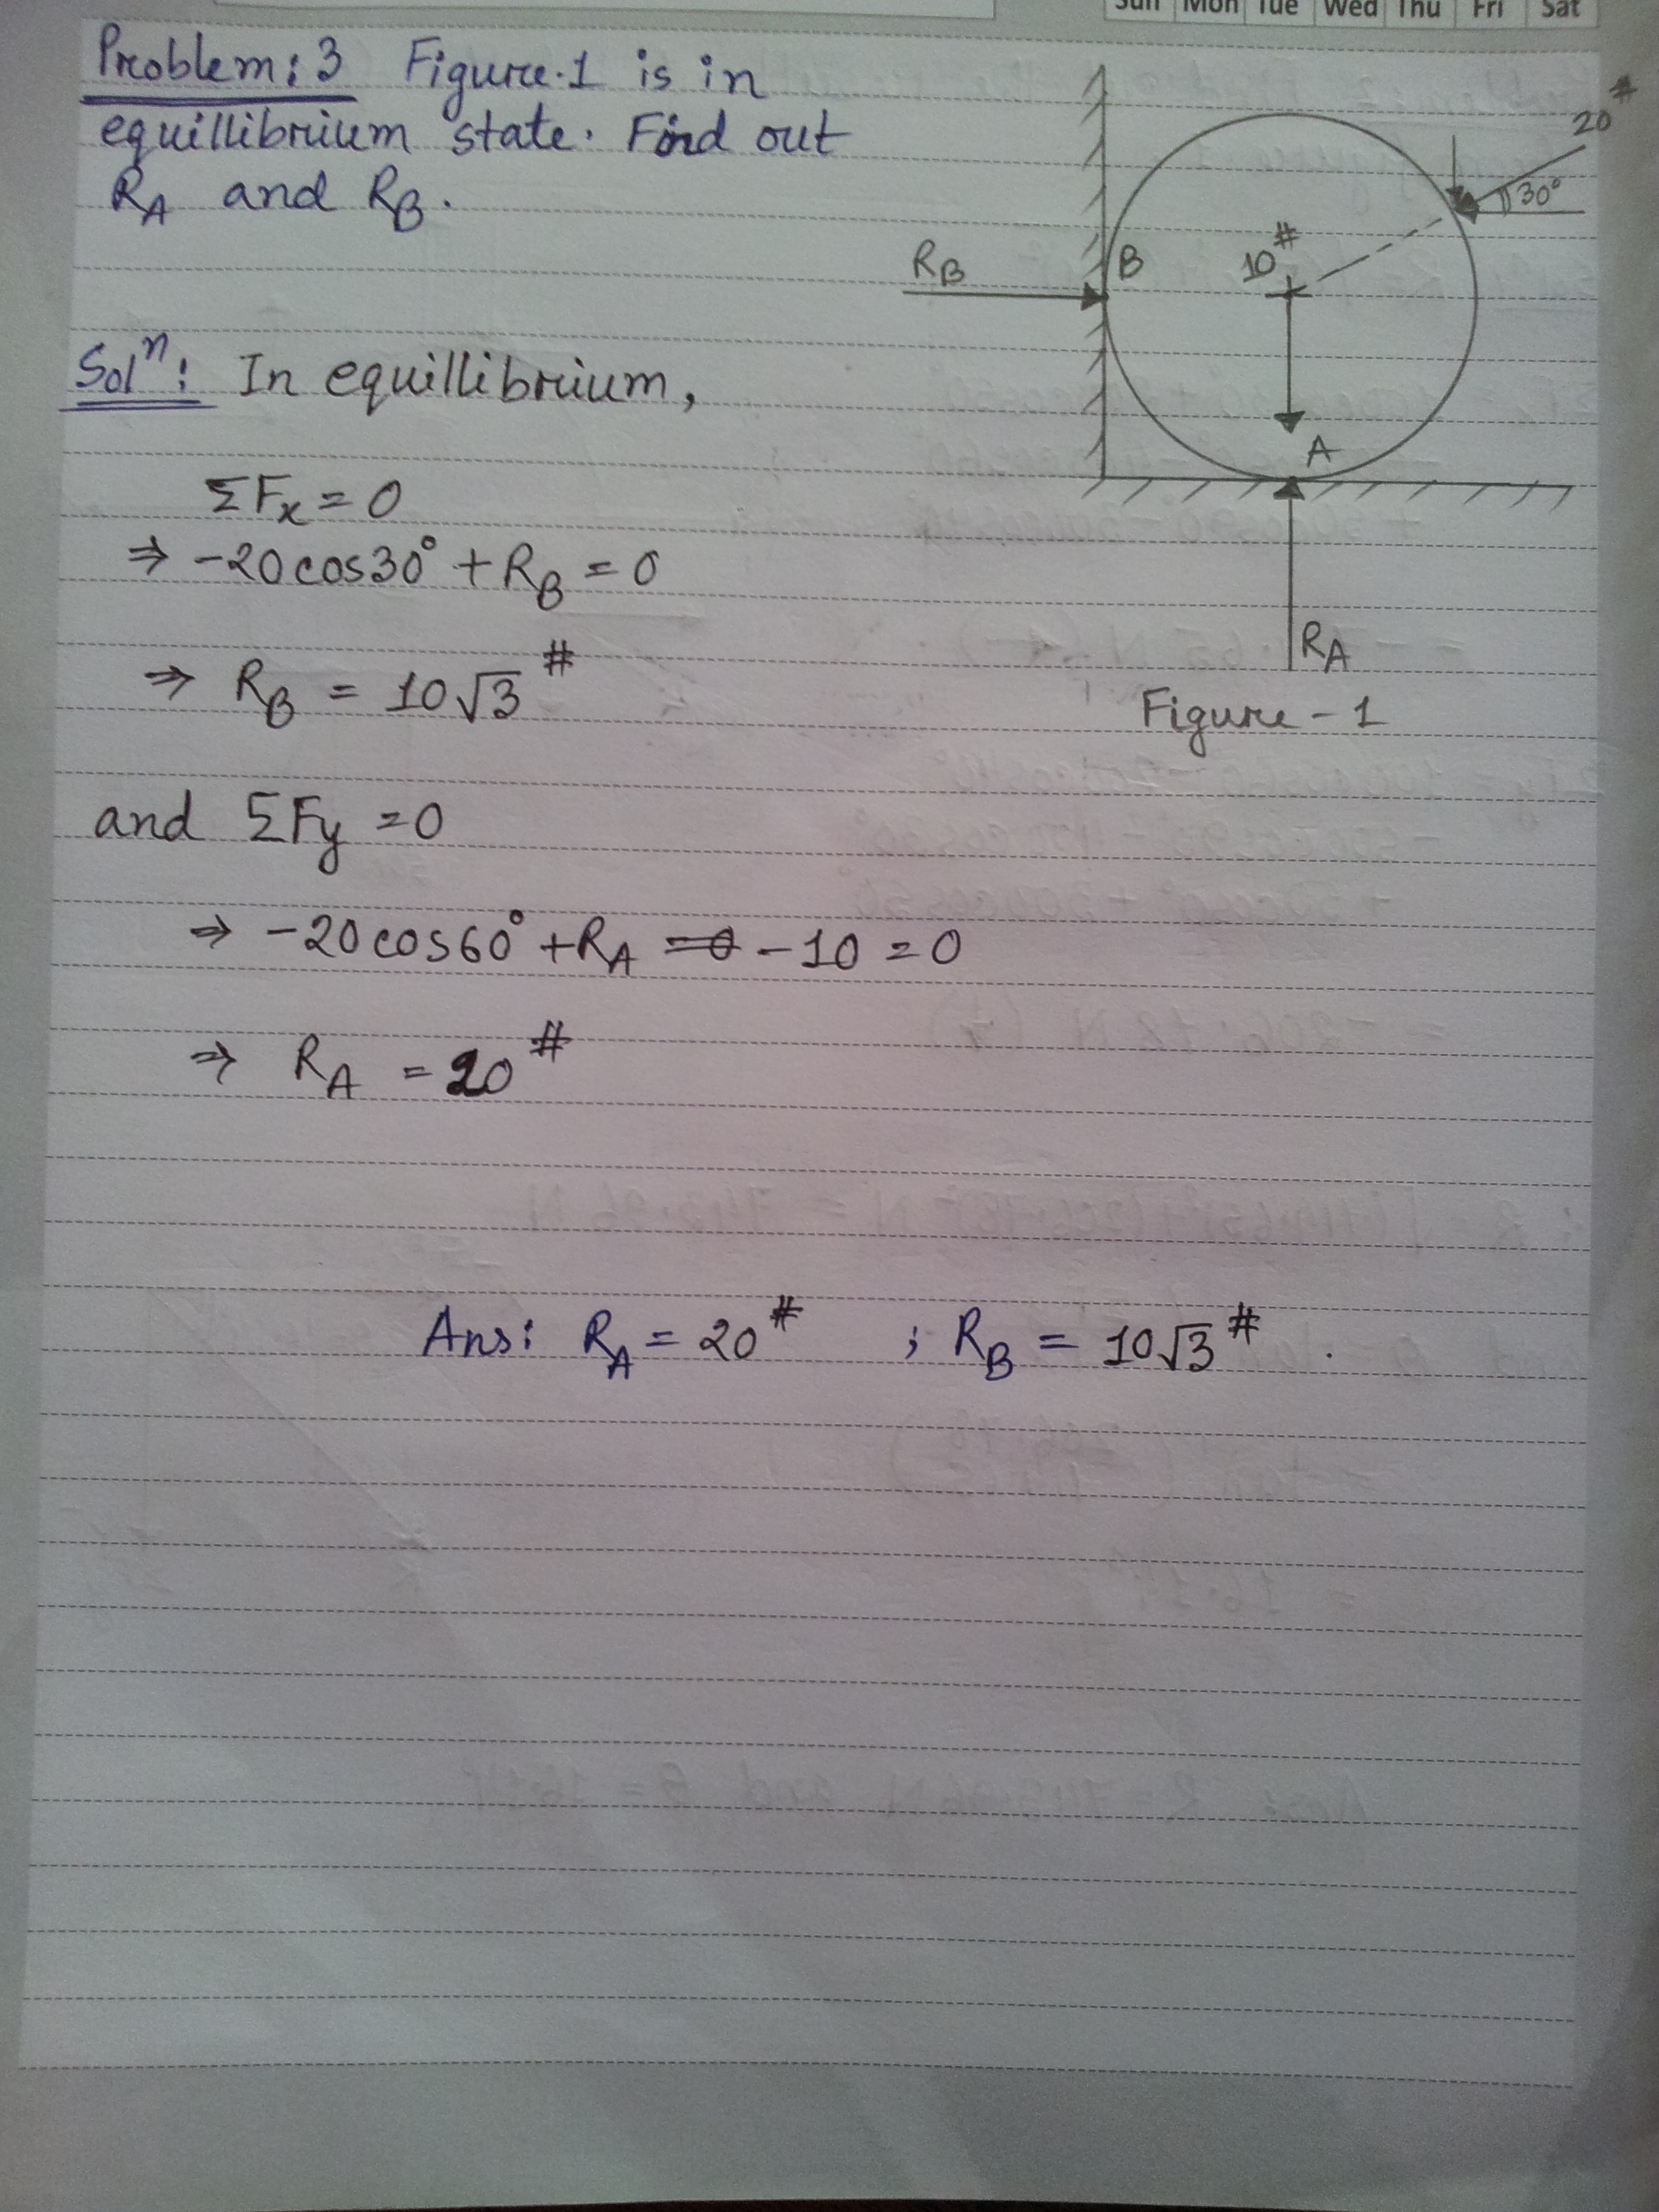 Sun Mon Tue Wed Thu Fri Sat
Problem: 3 Figure.1 is in
equillibrium state. Find out
R_A and R_B.
20#
30°
10#
R_B
B
A
R_A
Figure - 1
Solⁿ: In equillibrium,
ΣFx = 0
⇒ -20cos30° + R_B = 0
⇒ R_B = 10√3 #
and ΣFy = 0
⇒ -20cos60° + R_A = 0 - 10 = 0
⇒ R_A = 20 #
Ans: R_A = 20# ; R_B = 10√3 # .